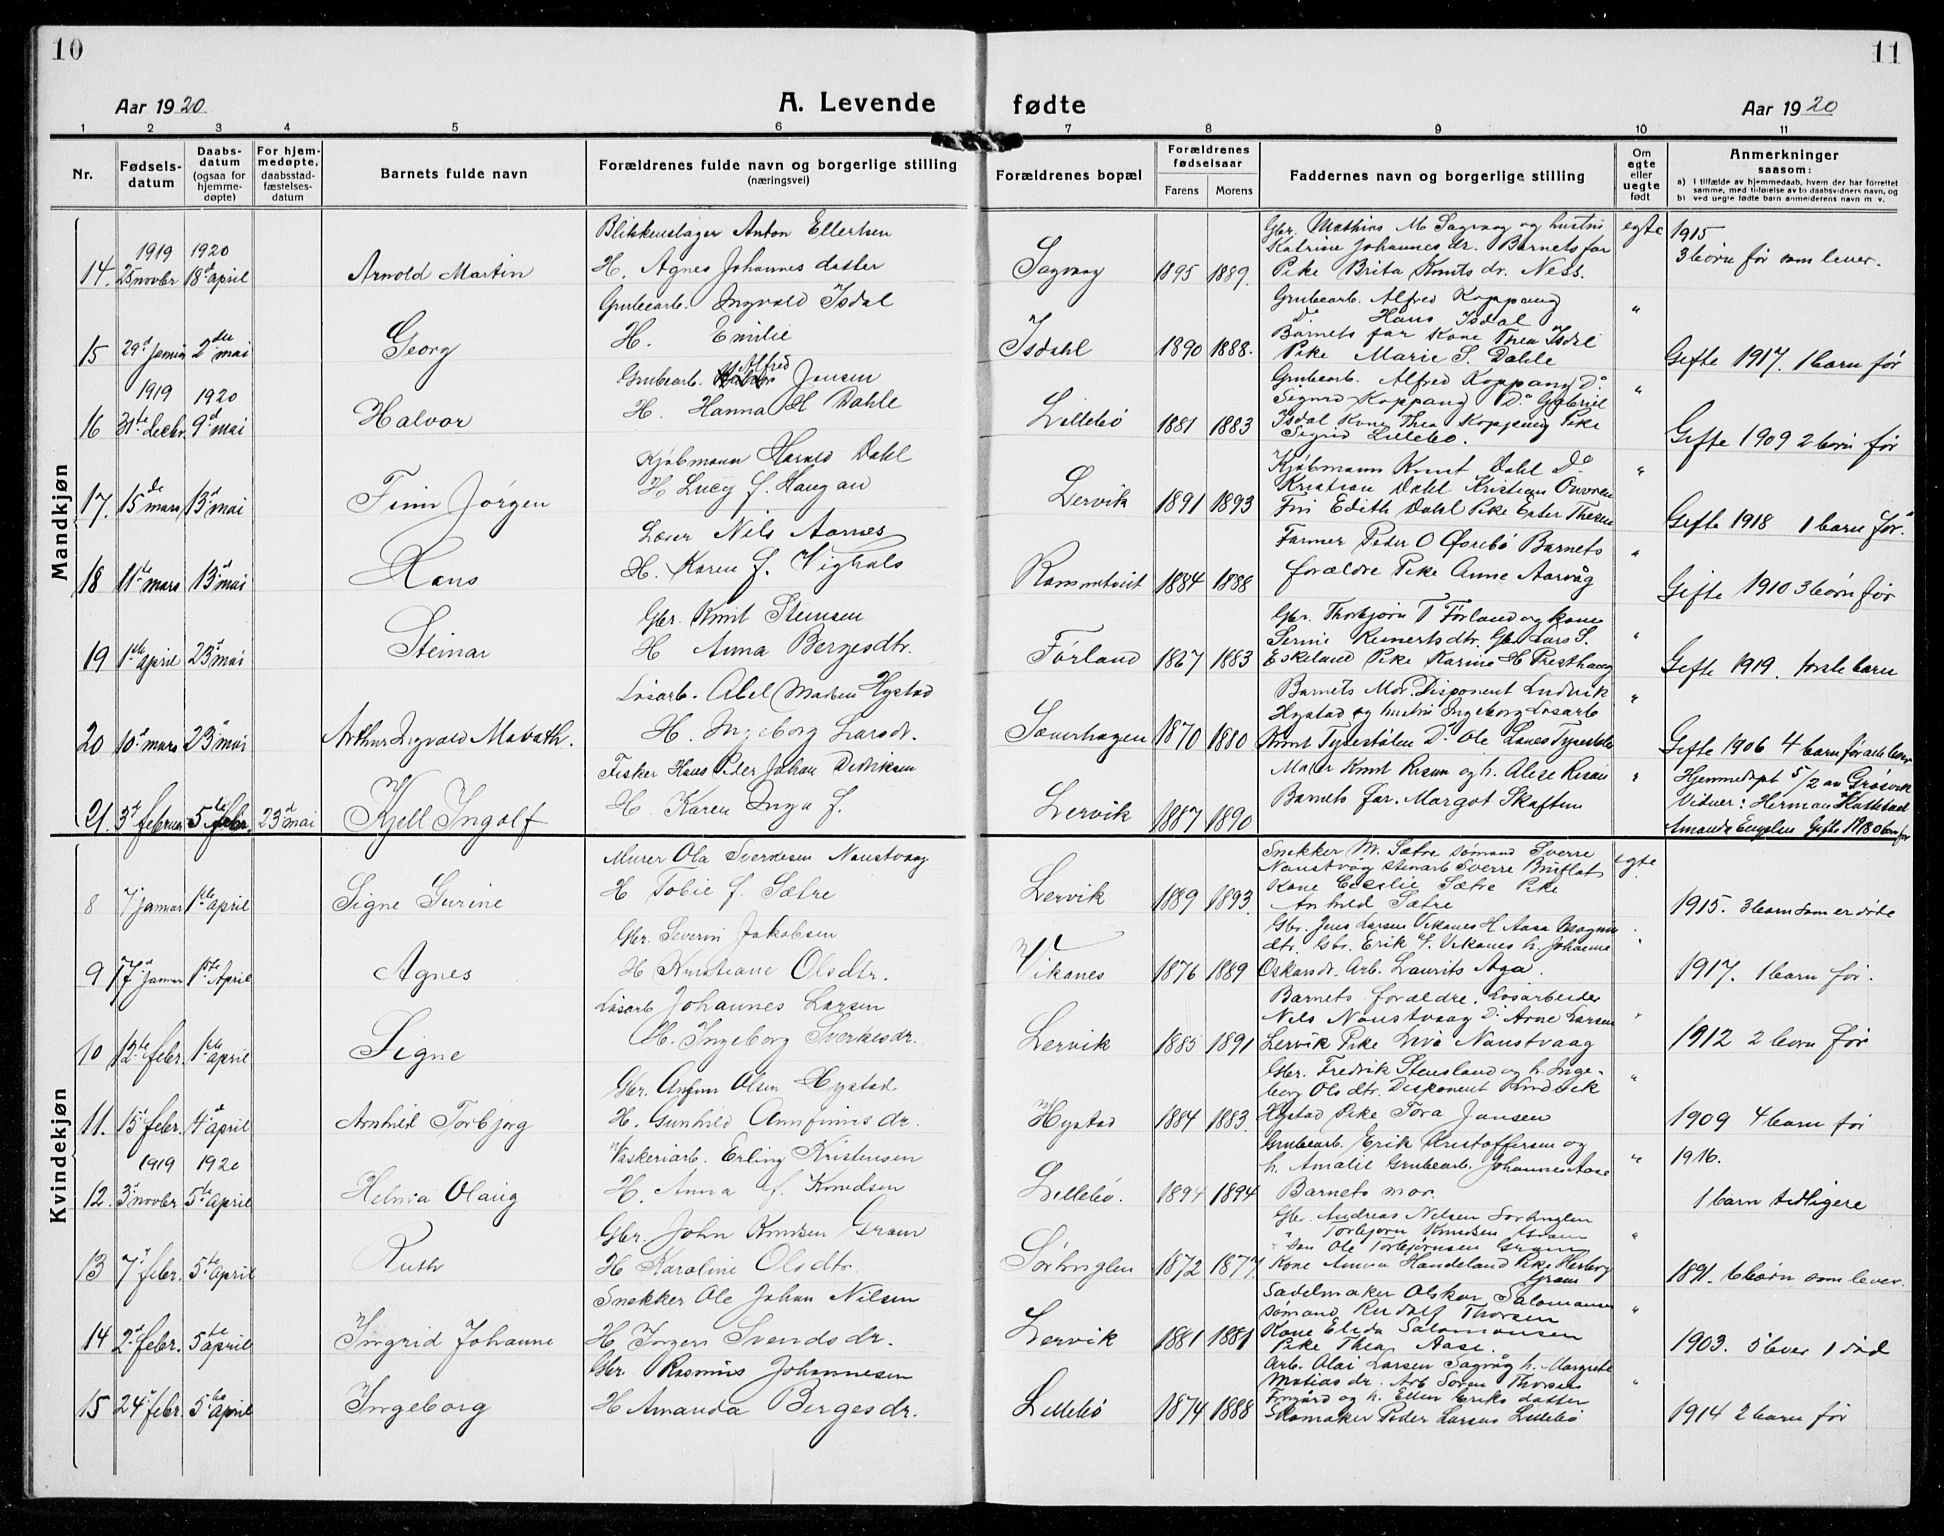 10
11
Aar 1920
A. Levende
fødte
Aar 1920
1 2 3 4 5 6 7 8 9 10 11
Nr.
Fødsels-
datum
Daabs-
datum
(ogsaa for
hjemme-
døpte)
For hjem-
medøpte,
daabsstad-
fæstelses-
datum
Barnets fulde navn
Forældrenes fulde navn og borgerlige stilling
(næringsvei)
Forældrenes bopæl
Forældrenes
fødselsaar
Farens Morens
Faddernes navn og borgerlige stilling
Om
egte
eller
uegte
født
Anmerkninger
saasom:
a) I tilfælde av hjemmedaab, hvem der har forrettet
samme, med tilføielse av to daabsvidners navn, og
b) ved uegte fødte barn anmelderens navn m. v.
Mandkjøn
1919 1920
14. 25 novbr 18d april
Arnold Martin
Blikkenslager Anton Ellertsen
H. Agnes Johannesdatter
Sagvaag
1895 1889.
Gbr. Mathias M Sagvaag og hustru
Katrine Johannesdr. Barnets far
Pike Brita Knutsdr. Ness.
egte
1915
3 børn før som lever.
15 29d 2den mai
Georg
Grubearb. Ingvald Isdal
H. Emilie
Isdahl
1890 1888.
Grubearb. Alfred Koppang
Do Hans Isdal
Barnets far Kone Thea Isdal
Pike Marie S. Dahle
"
Gifte 1917. 1 barn før
1919 1920
16 31te decbr. 9d mai
Halvor
Grubearb. Alfred Jensen
H. Hanna H Dahle
Lillebø
1881 1883
Grubearb. Alfred Koppang Do
Sigurd Koppang Do Gabriel
Isdal Kone Thea Koppang Pike
Sigrid Lillebø.
"
Gifte 1909 2 børn før
17. 15de mars 13d mai
Finn Jørgen
Kjøbmann Harald Dahl
H Lucy f. Haugan
Lervik
1891 1893
Kjøbmann Knut Dahl Do
Kristian Dahl Kristian
Fru Edith Dahl Pike Ester Thesen
"
Gifte 1918 1 barn før.
18 11te mars 13d mai
Hans
Lærer Nils Aarnes
H. Karen f. Vighals
1884 1888
Farmer Peder O Øvrebø Barnets
forældre Pike Anne Aarvåg
"
Gifte 1910 3 børn før
19 1ste april 23d mai
Steinar
Gbr. Knut Steinsen
H Anna Bergesdtr.
Førland
1867 1883
Gbr. Thorbjørn T Førland og kone
Serine Reinertsdtr. Gbr Lars S.
Eskeland Pike Karine H Presthaug
"
Gifte 1919. første barn
20 10d mars 23d mai
Arthur Ingvald
Løsarb. Abel Hystad
H. Ingeborg Larsdr.
Sæverhagen
1870 1880
Barnets Mor. Disponent Ludvik
Hystad og hustru Ingeborg Løsarb
Knut Do Ole
"
Gifte 1906 4 barn før alle lever
21. 3d februar 5te febr. 23d mai
Kjell Ingolf
Fisker Hans Peder Johan Didriksen
H. Karen Inga f.
Lervik
1887 1890
Maler Knut Risan og h. Alise Risan
Barnets far. Margot Skaften
"
Hjemmedøpt 5/2 av Grøsvik
Vidner: Herman
Amanda Gifte 1918 0 barn før
Kvindekjøn
8 7 januar 1ste april
Signe Gurine
Murer Ola Sverkesen Naustvaag
H Tobie f. Sætre
Lervik
1889 1893.
Snekker M. Sætre sømand Sverre
Naustvåg Stenarb Sverre Bruflat
Kone Cecilie Sætre Pike
Anhild Sætre
egte
1915. 3 barn som er døde
9 17d januar 1ste April
Agnes
Gbr. Severin Jakobsen
H Kristiane Olsdtr.
Vikanes
1876 1889
Gbr. Jens Larsen Vikanes H Aasa Magnus
dtr. Gbr. Erik S. Vikanes h. Johanne
Oskarsdr. Arb. Laurits Aga.
"
1917. 1 barn før.
10 12te febr. 1ste april
Signe
Løsarb Johannes Larsen
H. Ingeborg Sverkesdr.
Lervik
1885 1891
Barnets forældre. Løsarbeider
Nils Naustvaag Do Arne Larsen
Lervik Pike Liva Naustvaag
"
1912 2 børn før
11. 15d febr. 4d april
Arnhild Torbjørg
Gbr. Anfinn Olsen Hystad
H. Gunhild Annfinnsdr.
Hystad
1884 1883.
Gbr. Fredrik Stensland og h. Inge-
borg Olsdtr. Disponent Ludvik
Hystad Pike Tora Jansen
"
1909 4 barn før
1919 1920
12. 3d novbr 5te april
Helmia Olaug
Vaskeriarb. Erling Kristensen
H. Anna f. Knudsen
Lillebø.
1894 1894
Grubearb. Erik Kristoffersen og
h. Amalie Grubearb. Johannes Aase
Barnets mor.
"
1916.
1 barn tidligere
13 7d febr. 5te april
Ruth
Gbr. John Knudsen Gram
H Karoline Olsdtr.
Sørhuglen
1872 1877.
Gbr. Andreas Nilsen Sørhuglen
" Torbjørn Knudsen Gram
" Søn Ole Torbjørnsen Gram
Kone Anna Handeland Pike Herborg
Gram
"
1891. 6 børn som lever.
14 2d febr. 5te april
Ingrid Johanne
Snekker Ole Johan Nilsen
H Inger Svendsdr.
Lervik
1881 1881
Sadelmaker Olskar Salomonsen
sømand Rudolf Thorsen
Kone Elida Salomonsen
Pike Thea Aase.
"
1903. 5 lever 1 død
15 24d febr. 5te april
Ingeborg
Gbr. Rasmus Johannesen
H Amanda Bergesdr.
Lillebø
1874 1888
Arb. Olai Larsen Sagvåg h. Margrete
Matiasdr. Arb Søren Thorsen
og h. Ellen Eriksdatter
Skomaker Peder Larsen Lillebø
"
1914 2 barn før